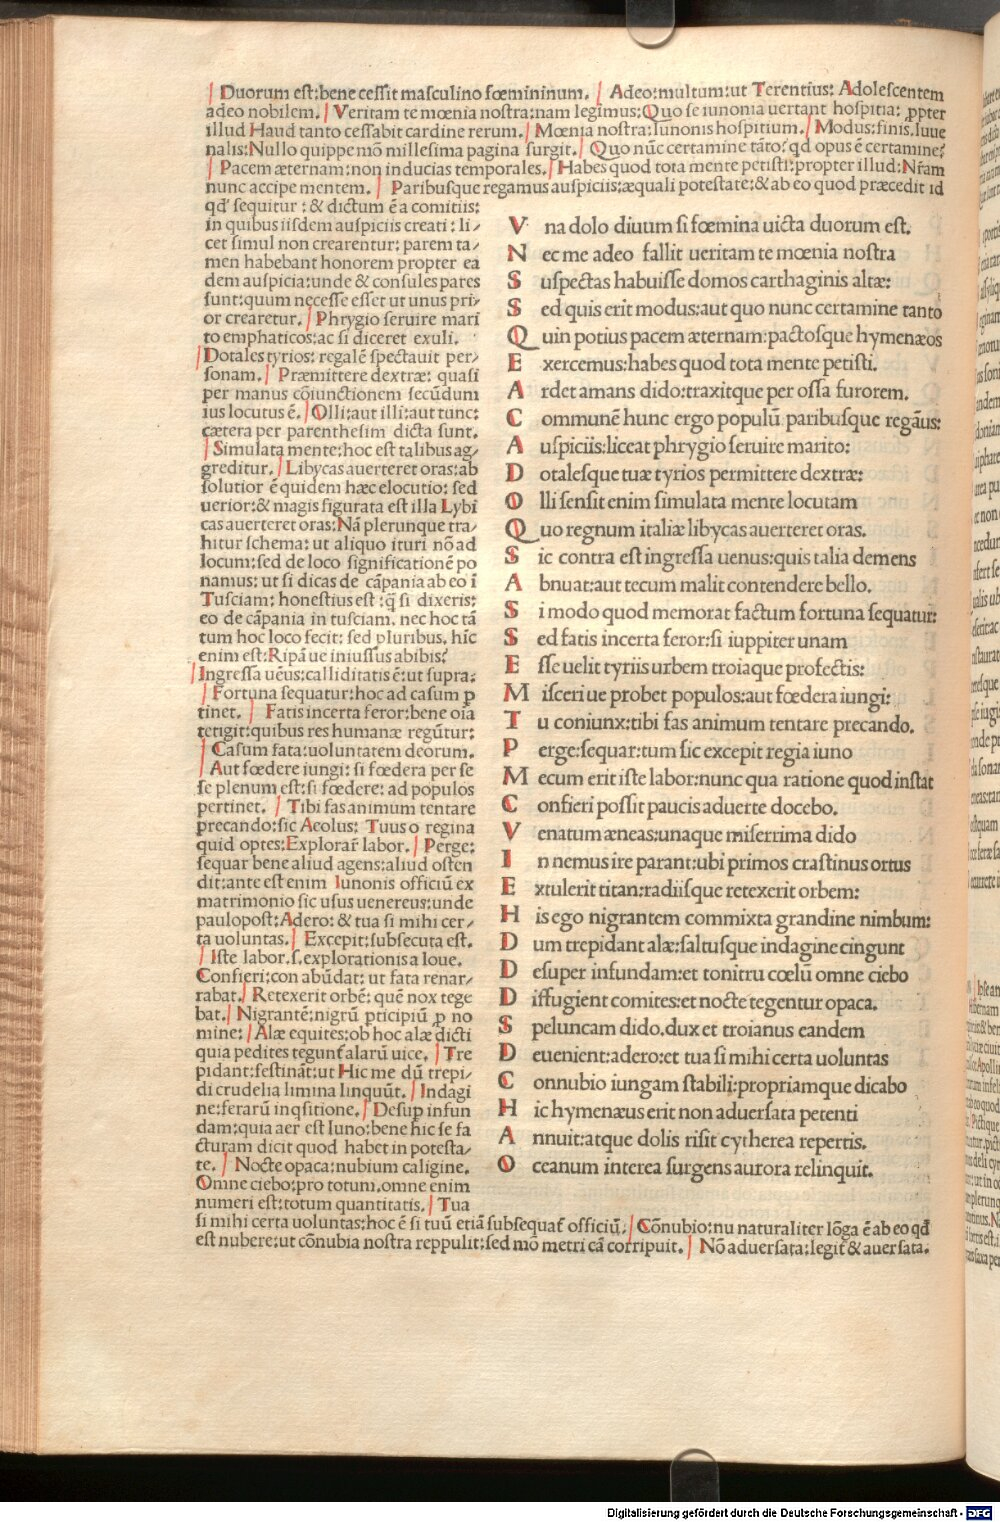 Duorum est: bene cessit masculino fœmininum. Adeo: multum: ut Terentius: Adolescentem
adeo nobilem. Veritam te mœnia nostra: nam legimus: Quo se iunonia uertant hospitia: ꝓpter
illud Haud tanto cessabit cardine rerum. Mœnia nostra: Iunonis hospitium. Modus: finis. Iuue
nalis: Nullo quippe mõ millesima pagina surgit. Quo nũc certamine tãto? qd opus ẽ certamine?
Pacem æternam: non inducias temporales. Habes quod tota mente petisti: propter illud: Nr̃am
nunc accipe mentem. Paribusque regamus auspiciis: æquali potestate: & ab eo quod præcedit id
qd' sequitur: & dictum ẽ a comitiis:
in quibus iisdem auspiciis creati: li-
cet simul non crearentur: parem ta-
men habebant honorem propter eã
dem auspicia: unde & consules pares
sunt: quum necesse esset ut unus pri-
or crearetur. Phrygio seruire mari
to emphaticos: ac si diceret exuli.
Dotales tyrios: regalẽ spectauit per-
sonam. Præmittere dextræ: quasi
per manus cõiunctionem secũduni
ius locutus ẽ. Olli: aut illi: aut tunc:
cætera per parenthesim dicta sunt.
Simulata mente: hoc est talibus ag-
greditur. Libycas auerteret oras: ab
solutior ẽ quidem hæc elocutio: sed
uerior: & magis figurata est illa Lybi
cas auerteret oras: Nã plerunque tra-
hitur schema: ut aliquo ituri nõ ad
locum: sed de loco significationẽ po
namus: ut si dicas de cãpania ab eo ĩ
Tusciam: honestius est: q̃ si dixeris:
eo de cãpania in tusciam. nec hoc tã
tum hoc loco fecit: sed pluribus. hic
enim est: Ripã ue iniussus abibis?
Ingressa uẽus: calliditatis ẽ: ut supra:
Fortuna sequatur: hoc ad casum ꝑ
tinet. Fatis incerta feror: bene oĩa
tetigit: quibus res humanæ regũtur:
Casum fata: uoluntatem deorum.
Aut fœdere iungi: si fœdera per se
se plenum est: si fœdere: ad populos
pertinet. Tibi fas animum tentare
precando: sic Aeolus: Tuus o regina
quid optes: Explorar̃ labor. Perge:
sequar bene aliud agens: aliud osten
dit: ante est enim Iunonis officiũ ex
matrimonio sic usus uenereus: unde
paulopost: Adero: & tua si mihi cer-
ta uoluntas. Excepit: subsecuta est.
Iste labor. s. explorationis a Ioue.
Confieri: con abũdat: ut fata renar-
rabat. Retexerit orbẽ: quẽ nox tege
bat. Nigrantẽ: nigrũ pticipiũ ꝓ no
mine: Alæ equites: ob hoc alæ dicti
quia pedites tegunt̃ alarũ uice. Tre
pidant: festinãt: ut Hic me dũ trepi-
di crudelia limina linquũt. Indagi
ne: ferarũ inqsitione. Desup infun
dam: quia aer est Iuno: bene hic se fa
cturam dicit quod habet in potesta-
te. Nocte opaca: nubium caligine.
Omne ciebo: pro totum. omne enim
numeri est: totum quantitatis. Tua
si mihi certa uoluntas: hoc ẽ si tuũ etiã subsequat̃ officiũ. Cõnubio: nu naturaliter lõga ẽ ab eo qd
est nubere: ut cõnubia nostra reppulit: sed mõ metri cã corripuit. Nõ aduersata: legit̃ & auersata.
V na dolo diuum si fœmina uicta duorum est.
N ec me adeo fallit ueritam te mœnia nostra
S uspectas habuisse domos carthaginis altæ:
S ed quis erit modus: aut quo nunc certamine tanto
Q uin potius pacem æternam: pactosque hymenæos
E xercemus: habes quod tota mente petisti.
A rdet amans dido: traxitque per ossa furorem.
C ommunẽ hunc ergo populũ paribusque regãus:
A uspiciis: liceat phrygio seruire marito:
D otalesque tuæ tyrios permittere dextræ:
O lli sensit enim simulata mente locutam
Q uo regnum italiæ libycas auerteret oras.
S ic contra est ingressa uenus: quis talia demens
A bnuat: aut tecum malit contendere bello.
S i modo quod memorat factum fortuna sequatur:
S ed fatis incerta feror: si iuppiter unam
E sse uelit tyriis urbem troiaque profectis:
M isceri ue probet populos: aut fœdera iungi:
T u coniunx: tibi fas animum tentare precando.
P erge: sequar: tum sic excepit regia iuno
M ecum erit iste labor: nunc qua ratione quod instat
C onfieri possit paucis aduerte docebo.
V enatum æneas: unaque miserrima dido
I n nemus ire parant: ubi primos crastinus ortus
E xtulerit titan: radiisque retexerit orbem:
H is ego nigrantem commixta grandine nimbum:
D um trepidant alæ: saltusque indagine cingunt
D esuper infundam: et tonitru cœlũ omne ciebo
D iffugient comites: et nocte tegentur opaca.
S peluncam dido. dux et troianus eandem
D euenient: adero: et tua si mihi certa uoluntas
C onnubio iungam stabili: propriamque dicabo
H ic hymenæus erit non aduersata petenti
A nnuit: atque dolis risit cytherea repertis.
O ceanum interea surgens aurora relinquit.
Digitalisierung gefördert durch die Deutsche Forschungsgemeinschaft - DFG